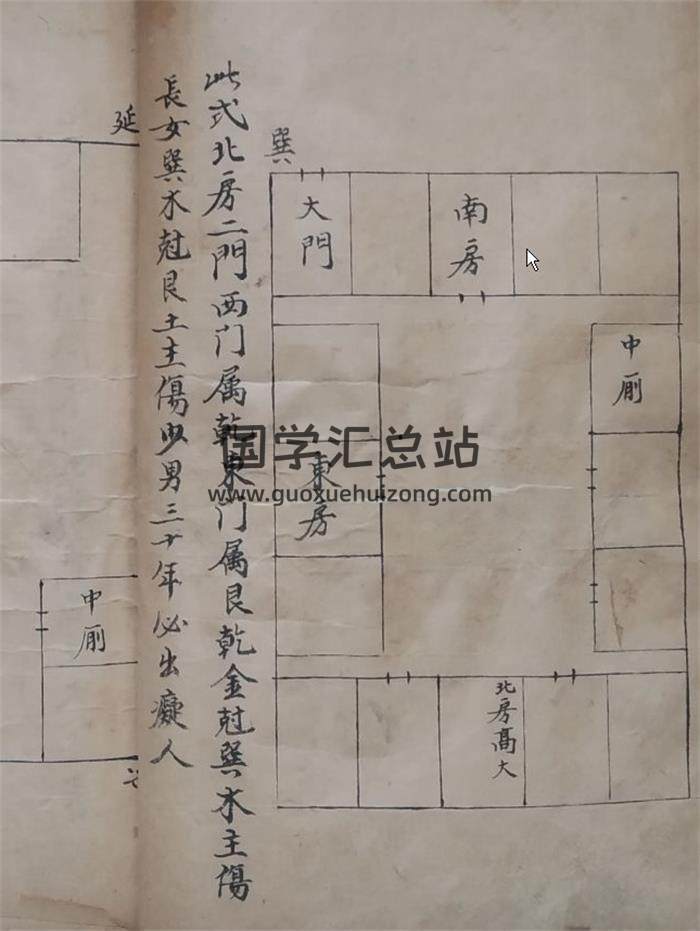 此式北房二門西门属乾東门属艮乾金尅巽木主傷
長女巽木尅艮土主傷少男三十年必出癡人
巽
大門
南房
中厠
東房
北房高大
延
中厠
国学汇总站
www.guoxuehuizong.com